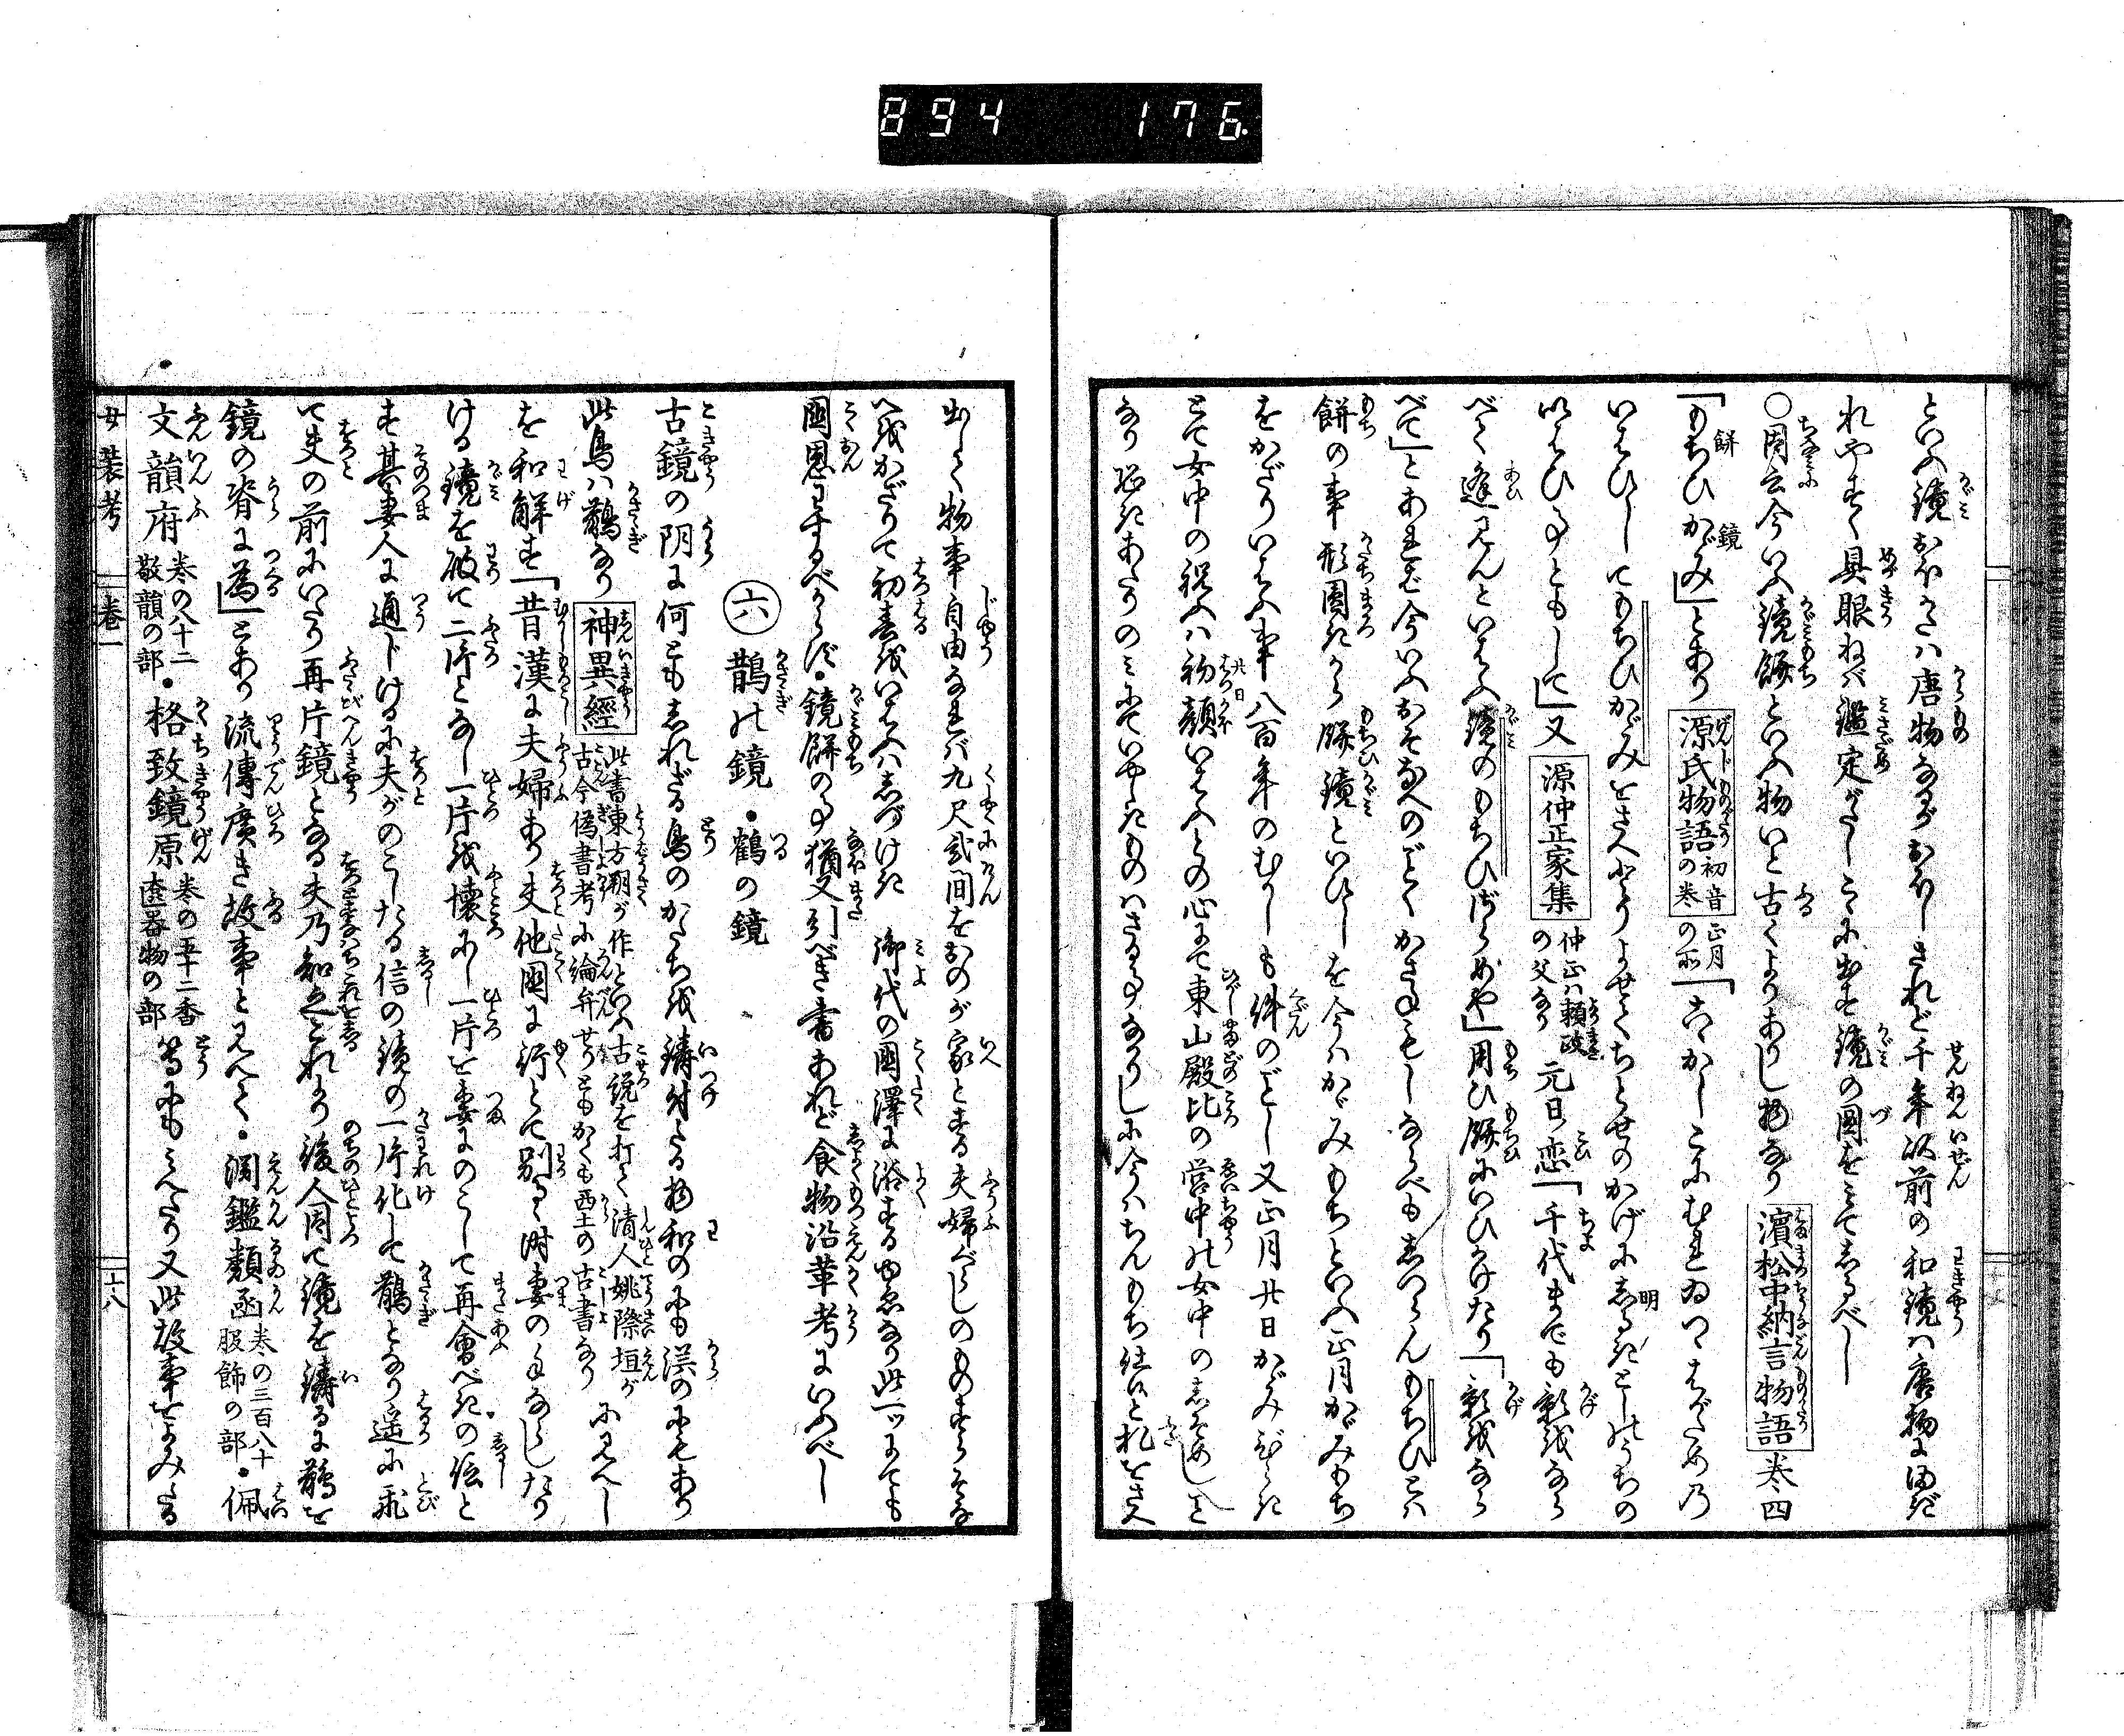 894 176
といへ鏡おほくハ唐物なるがおほしされど千年以前の和鏡ハ唐物にまぎ
れやすく具眼ねバ鑑定がたしこゝに出す鏡の圖をミてしるべし
○因云今いふ鏡餅といふ物いと古くよりありし物なり濱松中納言物語巻四
「もちひかゞみ」とあり源氏物語初音の巻正月の所「こゝかしこにむれゐつゝはがための
いはひしてもちひかゞみをさへとりよせてちとせのかげにしるきとしのうちの
いはひ事ともして」又源仲正家集仲正ハ頼政の父なり元日恋「千代までも影をなら
べて逢見んといはふ鏡のもちひざらめや」用ひ餅にいひかけたり「影をなら
べて」とあれば今いふおそなへのごとくかさねもしならべもしつらんもちひとハ
餅の事形圓きから餅鏡といひしを今ハかゞみもちといふ正月かゞみもち
をかざりいはふ事八百年のむかしも件のごとし又正月廿日かゞみびらき
とて女中の祝ふハ初顔いはふとの心にて東山殿比の営中の女中のしそめしこと
なり
出しく物事自由なれバ九尺弐間をおのが家とする夫婦ぐらしのものすらそな
へをかざりて初春をいはへハしづけき御代の國澤に浴するゆゑなり此一ツにても
國恩わするべからず・鏡餅の事猶又引べき書あれど食物沿革考にいふべし
㊅鵲の鏡・鶴の鏡
古鏡の阴に何ともしれざる鳥のかたちを鋳付たる物和のにも漢のにもあり
此鳥ハ鵲なり神異經此書東方朔が作といふ古説を打て清人姚際垣が古今偽書考に論弁せりともかくも西土の古書なりに見へし
を和解す「昔漢に夫婦あり夫他國に行とて別るゝ時妻の手ならしたり
ける鏡を破て二片となし一片を懐にし一片を妻にのこして再會べきの信と
す其妻人に通じけるに夫がのこしたる信の鏡の一片化して鵲となり遥に飛
て夫の前にいたり再片鏡となる夫乃知之これより後人因て鏡を鋳るに鵲を
鏡の脊に為」とあり流傳廣き故事と見へて・淵鑑類函巻の三百八十服飾の部・佩
文韻府巻の八十二敬韻の部・格致鏡原巻の五十二香奩器物の部等にもみえたり又此故事をよみたる
女装考 巻一 十八